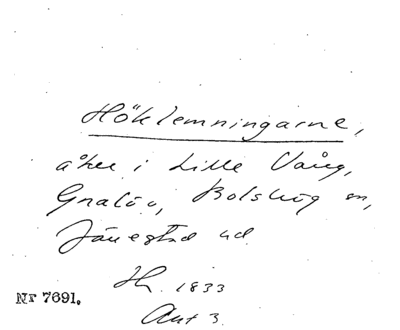 Höklemningarne,
åker i Lille Vång,
Gnalöv, Bolshög sn,
Järrestad hd
Hh. 1833
Akt 3.
Nr 7691.